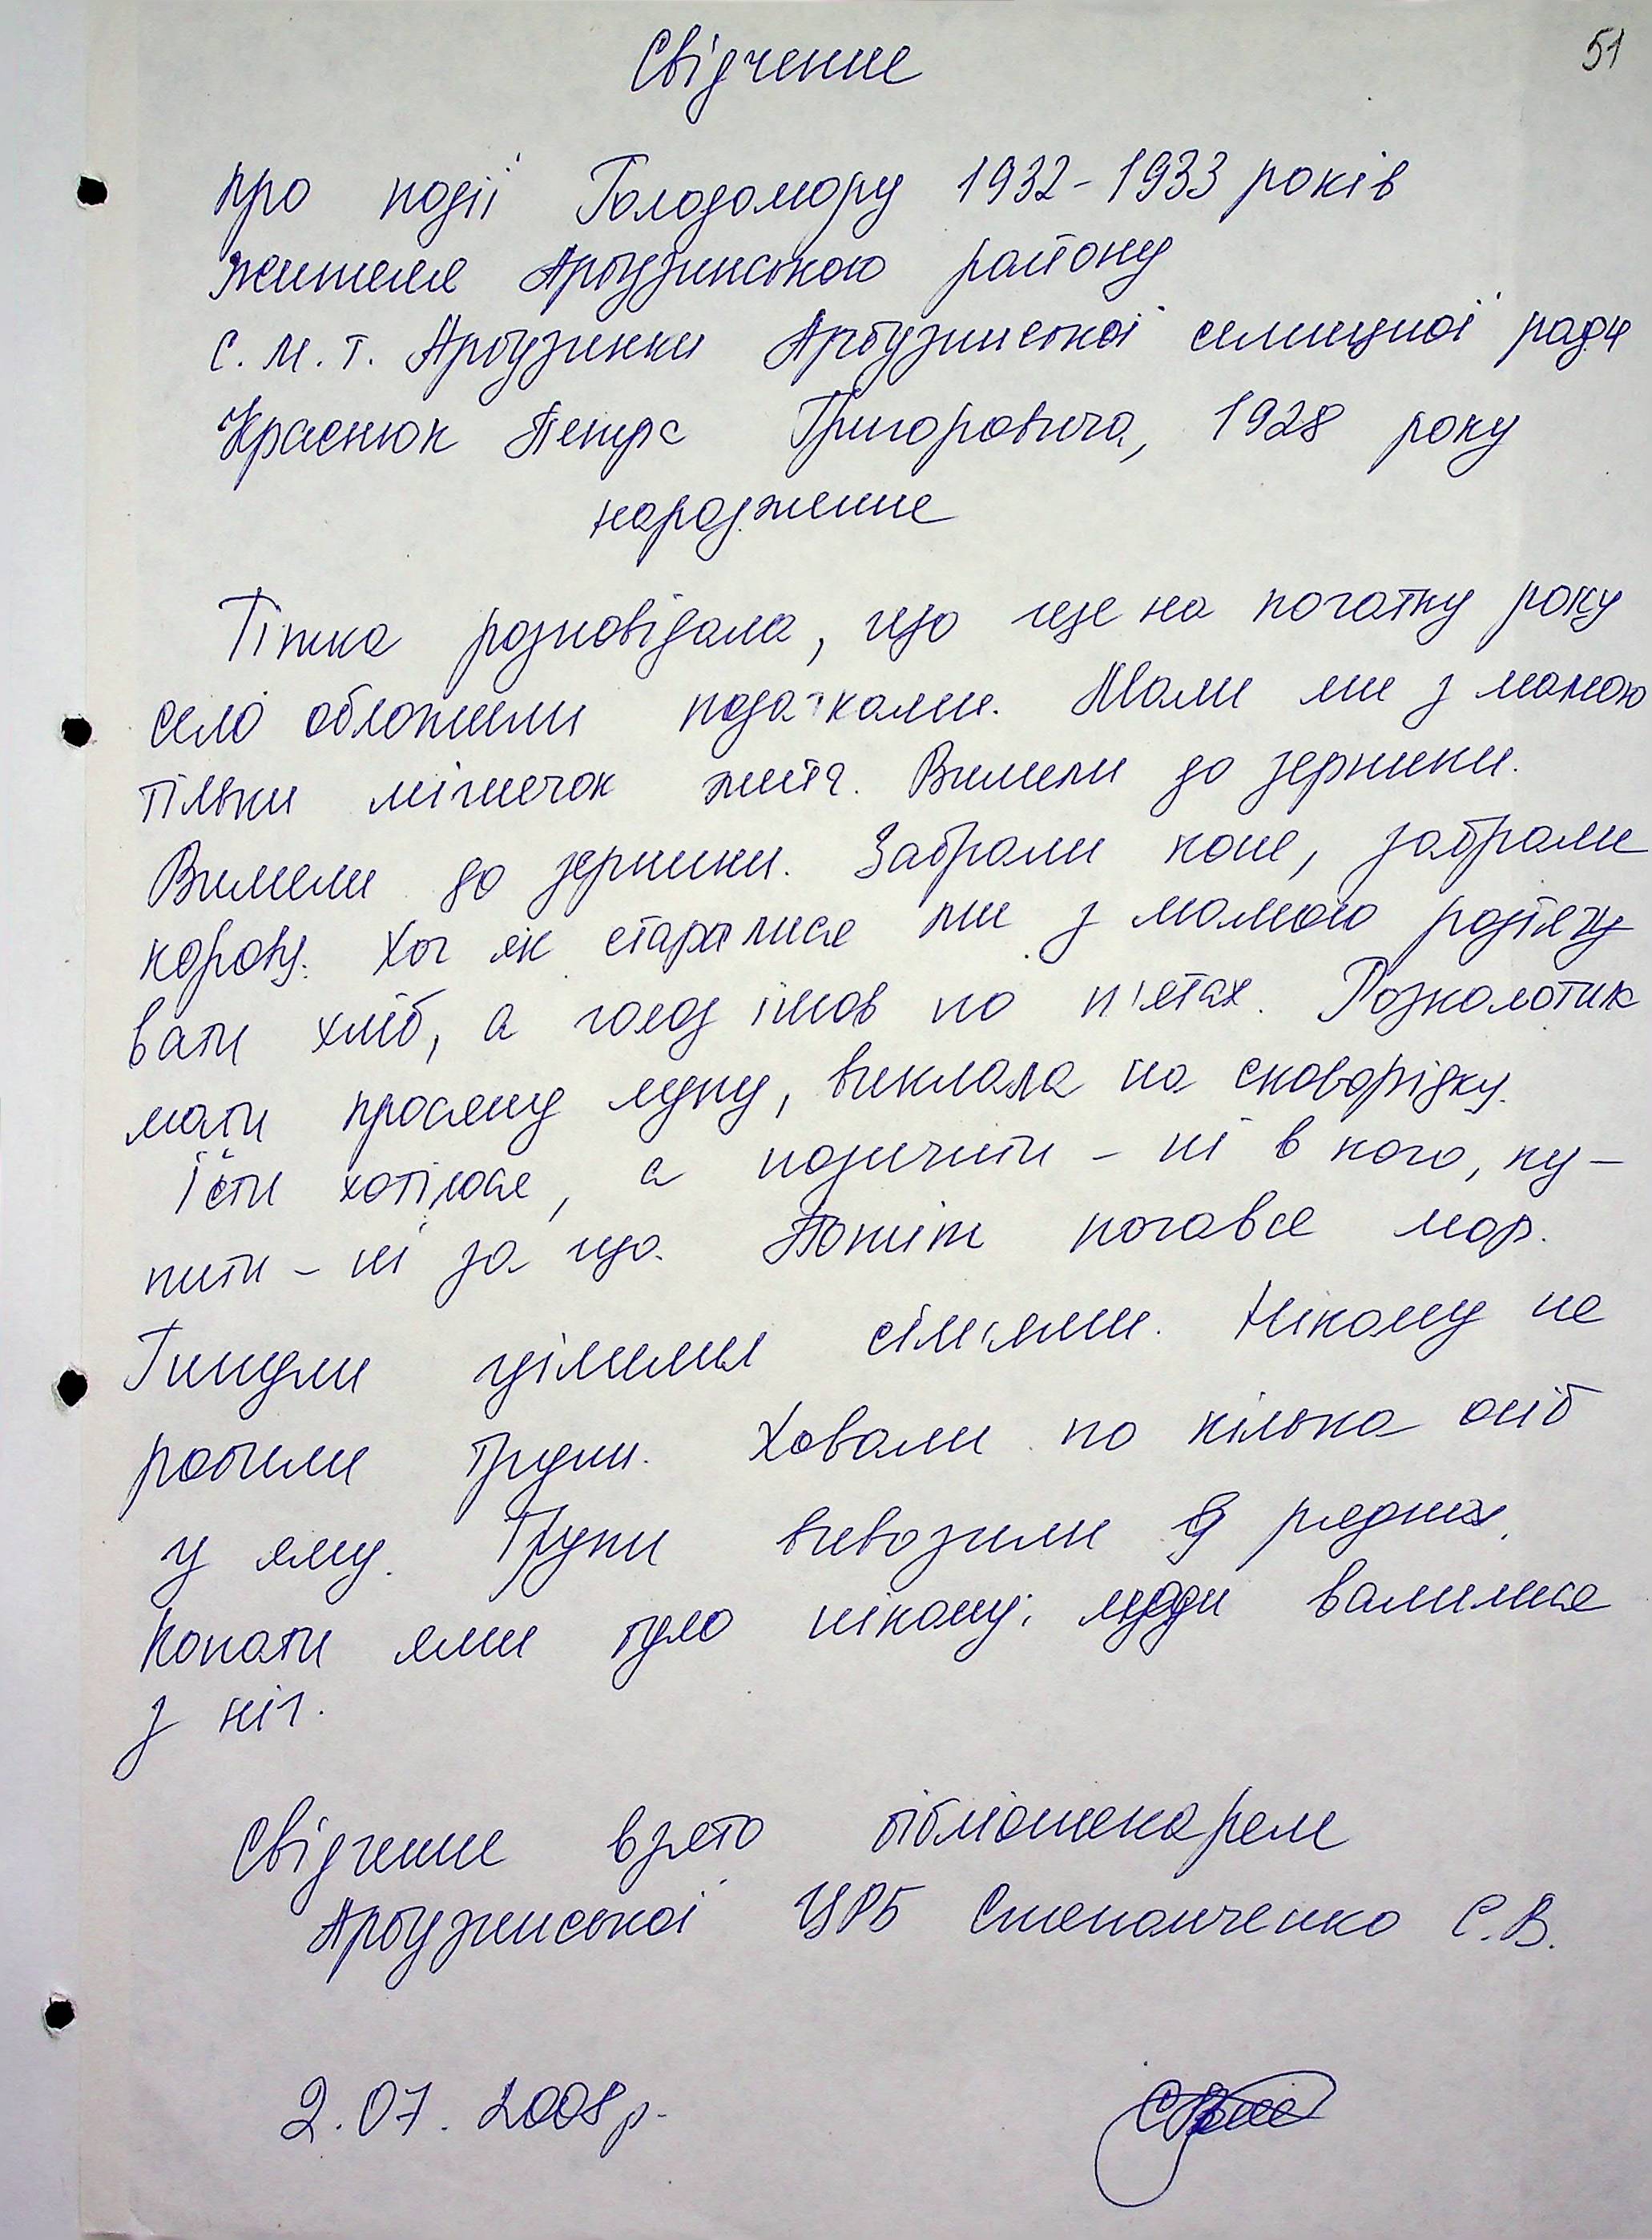 51
Свідчення
про події Голодомору 1932-1933 років
жителя Арбузинського району
с.м.т. Арбузинки Арбузинської селищної ради
Краснюк Петра Григоровича, 1928 року
народження
Тітка розповідала, що ще на початку року
село обложили податками. Мали ми з мамою
тільки мішечок жита. Вимели до зернини.
Вимели до зернини. Забрали коня, забрали
корову. Хоч як старалися ми з мамою розтягу
вати хліб, а голод ішов по п'ятах. Розколотила
мати просяну муку, виклала на сковорідку.
Їсти хотілося, а позичити - ні в кого, ку-
пити - ні за що. Потім почався мор.
Гинули цілими сім'ями. Нікому не
робили труни. Ховали по кілька осіб
у яму. Трупи вивозили в ряднах.
Копати ями було нікому: люди валилися
з ніг.
Свідчення взято бібліотекарем
Арбузинської ЦРБ Степанченко С.В.
2.07.2008р.